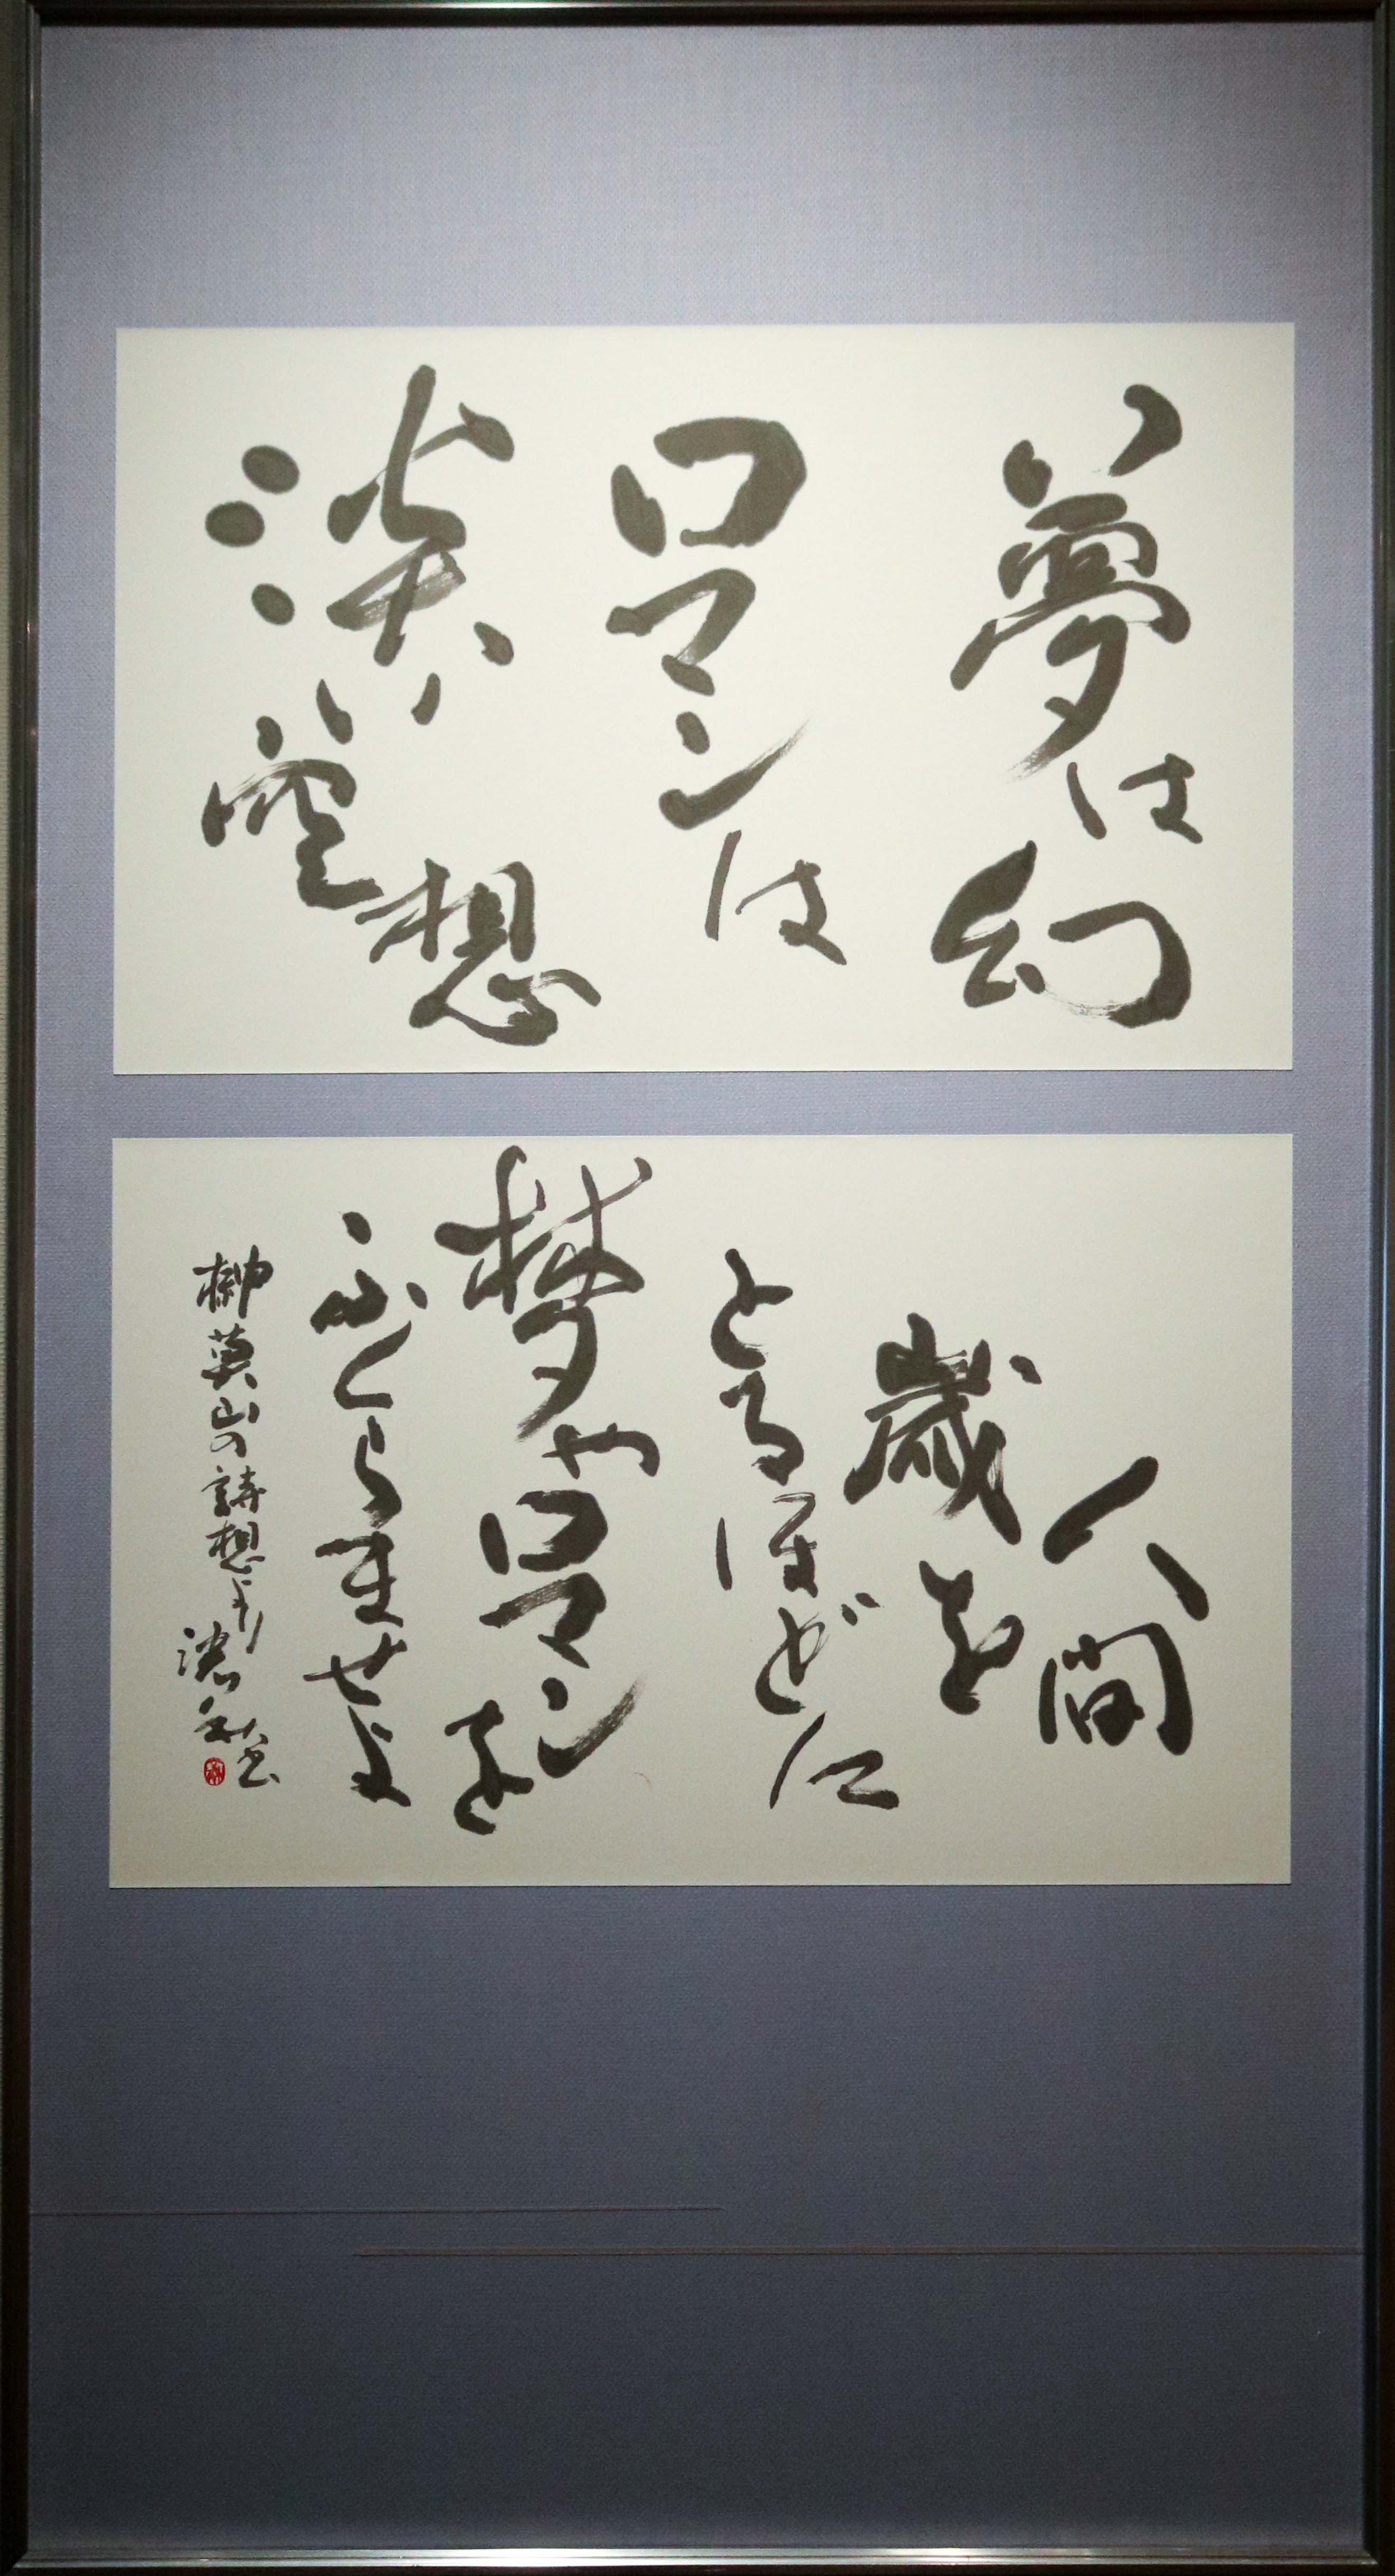 夢は幻
ロマンは
淡い空想
人間
歳を
とるほどに
梦やロマンを
ふくらませよ
榊莫山の詩想より